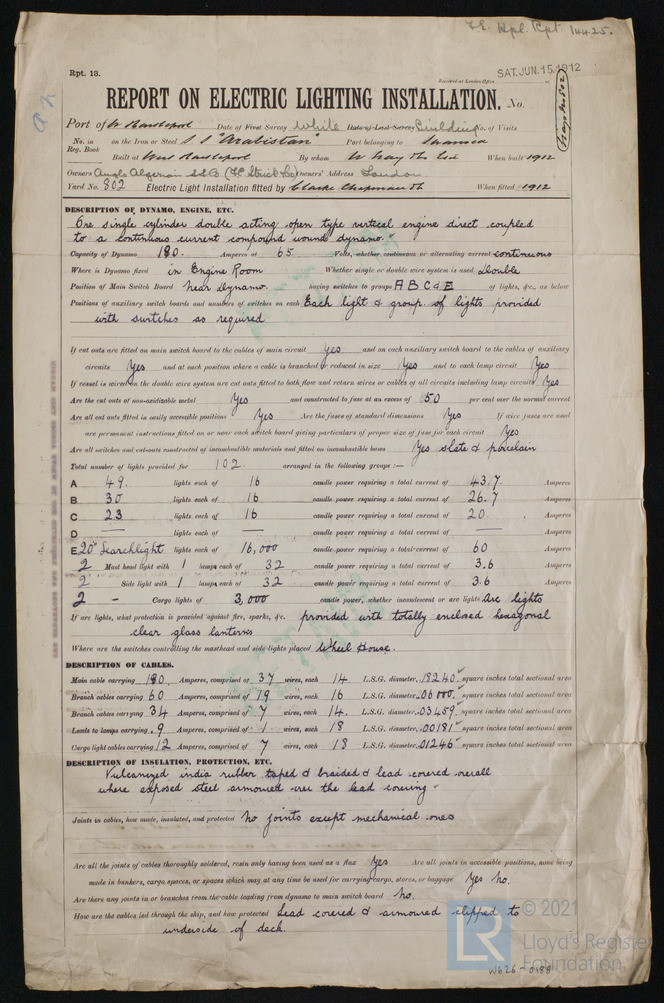 Hpl. Rpt. 14425.
Rpt. 13.
SAT. JUN. 15 1912
Received at London Office
REPORT ON ELECTRIC LIGHTING INSTALLATION. No.
Port of W. Hartlepool Date of First Survey While Date of Last Survey Building No. of Visits
No. in Reg. Book on the Iron or Steel S S "Arabistan" Port belonging to Swansea
Built at West Hartlepool By whom W Gray & Co Ltd When built 1912
Owners Anglo Algerian S.S. Co (F. C. Strick & Co) Owners' Address London
Yard No. 802 Electric Light Installation fitted by Clarke Chapman & Co When fitted 1912
DESCRIPTION OF DYNAMO, ENGINE, ETC.
One single cylinder double acting open type vertical engine direct coupled
to a continuous current compound wound dynamo.
Capacity of Dynamo 180. Amperes at 65 Volts, whether continuous or alternating current continuous
Where is Dynamo fixed in Engine Room Whether single or double wire system is used double
Position of Main Switch Board near dynamo. having switches to groups A B C & E of lights, &c., as below
Positions of auxiliary switch boards and numbers of switches on each Each light & group of lights provided
with switches as required
If cut outs are fitted on main switch board to the cables of main circuit yes and on each auxiliary switch board to the cables of auxiliary
circuits yes and at each position where a cable is branched or reduced in size yes and to each lamp circuit yes
If vessel is wired on the double wire system are cut outs fitted to both flow and return wires or cables of all circuits including lamp circuits yes
Are the cut outs of non-oxidizable metal yes and constructed to fuse at an excess of 50 per cent over the normal current
Are all cut outs fitted in easily accessible positions yes Are the fuses of standard dimensions yes If wire fuses are used
are permanent instructions fitted on or near each switch board giving particulars of proper size of fuse for each circuit yes
Are all switches and cut-outs constructed of incombustible materials and fitted on incombustible bases yes slate & porcelain
Total number of lights provided for 102. arranged in the following groups :—
A 49. lights each of 16 candle power requiring a total current of 43.7. Amperes
B 30 lights each of 16 candle power requiring a total current of 26.7 Amperes
C 23 lights each of 16 candle power requiring a total current of 20. Amperes
D — lights each of — candle power requiring a total current of — Amperes
E 20" Searchlight lights each of 16,000 candle power requiring a total current of 60 Amperes
2 Mast head light with 1 lamps each of 32 candle power requiring a total current of 3.6 Amperes
2 Side light with 1 lamps each of 32 candle power requiring a total current of 3.6 Amperes
2 - Cargo lights of 3,000 candle power, whether incandescent or arc lights Arc lights
If arc lights, what protection is provided against fire, sparks, &c. provided with totally enclosed hexagonal
clear glass lanterns
Where are the switches controlling the masthead and side lights placed Wheel House.
DESCRIPTION OF CABLES.
Main cable carrying 180. Amperes, comprised of 37 wires, each 14 L.S.G. diameter, .18240 square inches total sectional area
Branch cables carrying 60 Amperes, comprised of 19 wires, each 16 L.S.G. diameter, .06000 square inches total sectional area
Branch cables carrying 34 Amperes, comprised of 7 wires, each 14. L.S.G. diameter, .03459 square inches total sectional area
Leads to lamps carrying .9 Amperes, comprised of 1 wires, each 18 L.S.G. diameter, .00181 square inches total sectional area
Cargo light cables carrying 12 Amperes, comprised of 7 wires, each 18 L.S.G. diameter, .01246 square inches total sectional area
DESCRIPTION OF INSULATION, PROTECTION, ETC.
Vulcanized india rubber taped & braided & lead covered overall
where exposed steel armoured over the lead covering
Joints in cables, how made, insulated, and protected No joints except mechanical ones
Are all the joints of cables thoroughly soldered, resin only having been used as a flux yes Are all joints in accessible positions, none being
made in bunkers, cargo spaces, or spaces which may at any time be used for carrying cargo, stores, or baggage yes no.
Are there any joints in or branches from the cable leading from dynamo to main switch board no.
How are the cables led through the ship, and how protected Lead covered & armoured clipped to
underside of deck.
© 2021
LR
Lloyd's Register
Foundation
W626-0188